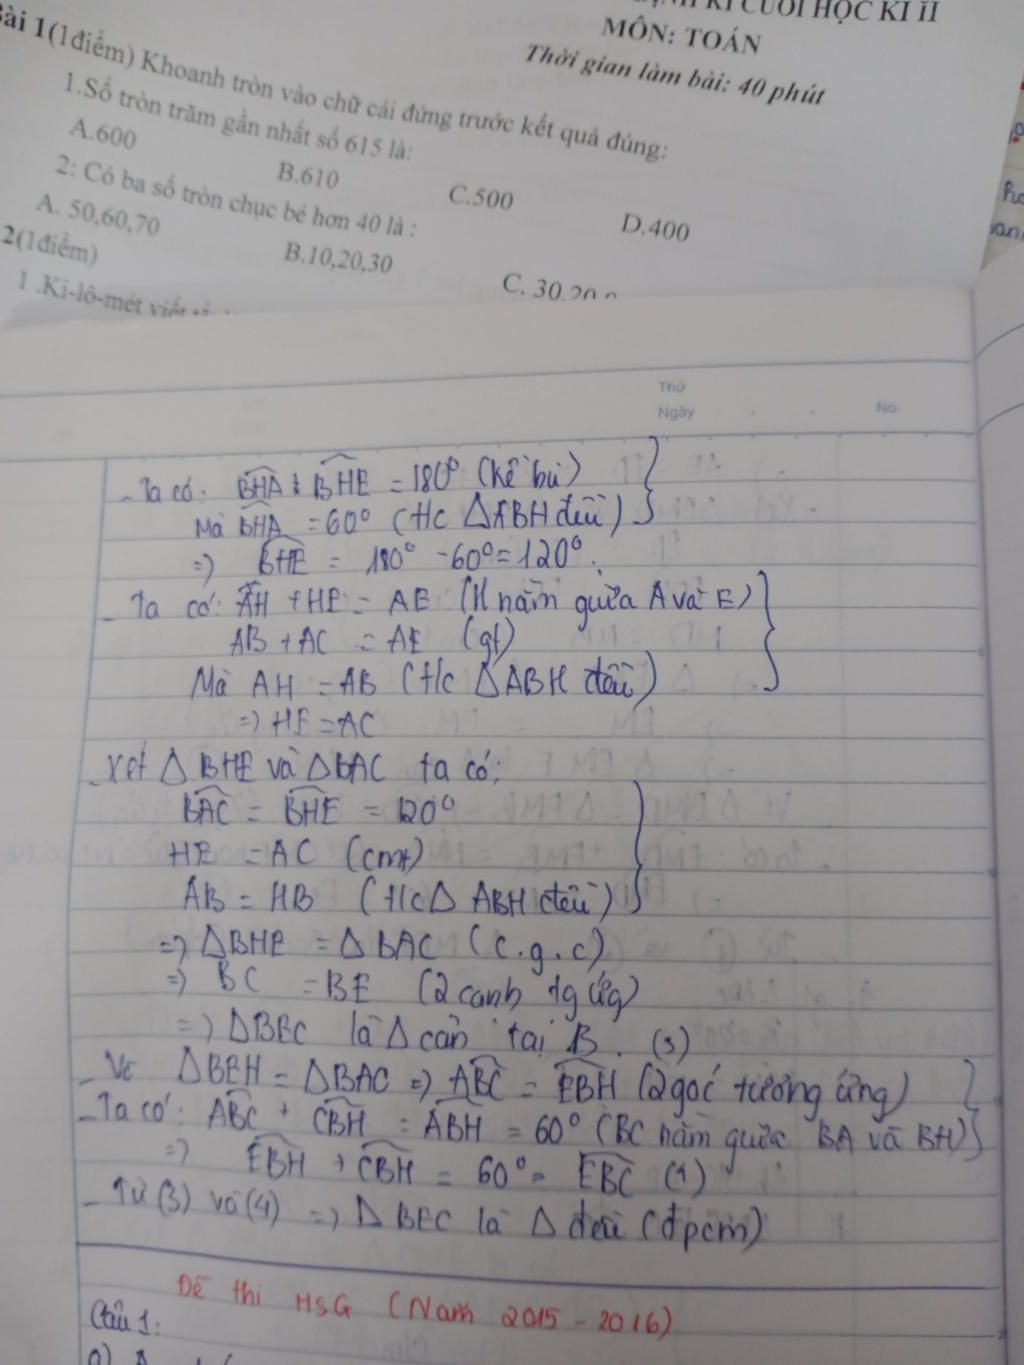 ĐỊNH KÌ CUỐI HỌC KÌ II
MÔN: TOÁN
Thời gian làm bài: 40 phút
Bài 1(1điểm) Khoanh tròn vào chữ cái đứng trước kết quả đúng:
1.Số tròn trăm gần nhất số 615 là:
A.600 B.610 C.500 D.400
2: Có ba số tròn chục bé hơn 40 là :
A. 50,60,70 B.10,20,30 C. 30,20,0
2(1điểm)
1 .Ki-lô-mét viết tắt
Thứ
Ngày . . No.
- Ta có: BHA + BHE = 180° (kề bù)
Mà BHA = 60° (t/c △ABH đều)
=> BHE = 180° - 60° = 120°.
- Ta có: AH + HE = AE (H nằm giữa A và E)
AB + AC = AE (gt)
Mà AH = AB (t/c △ABH đều)
=> HE = AC
- Xét △ BHE và △BAC ta có:
BAC = BHE = 120°
HE = AC (cmt)
AB = HB (t/c △ ABH đều)
=> △BHE = △BAC (c.g.c)
=> BC = BE (2 cạnh tg ứg)
=> △BEC là △ cân tại B. (3)
- Vì △BEH = △BAC => ABC = EBH (2 góc tương ứng)
- Ta có: ABC + CBH = ABH = 60° (BC nằm giữa BA và BH)
=> EBH + CBH = 60° = EBC (4)
- Từ (3) và (4) => △ BEC là △ đều (đpcm)
Đề thi HSG (Năm 2015 - 2016)
Câu 1:
a)